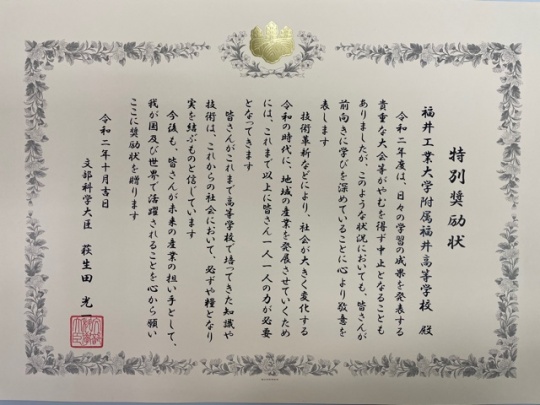 特別奨励状
福井工業大学附属福井高等学校 殿
令和二年度は、日々の学習の成果を発表する
貴重な大会等がやむを得ず中止となることも
ありましたが、このような状況においても、皆さんが
前向きに学びを深めていることに心より敬意を
表します
技術革新などにより、社会が大きく変化する
令和の時代に、地域の産業を発展させていくため
には、これまで以上に皆さん一人一人の力が必要
となってきます
皆さんがこれまで高等学校で培ってきた知識や
技術は、これからの社会において、必ずや糧となり
実を結ぶものと信じています
今後も、皆さんが未来の産業の担い手として、
我が国及び世界で活躍されることを心から願い
ここに奨励状を贈ります
令和二年十月吉日
文部科学大臣 萩生田 光一